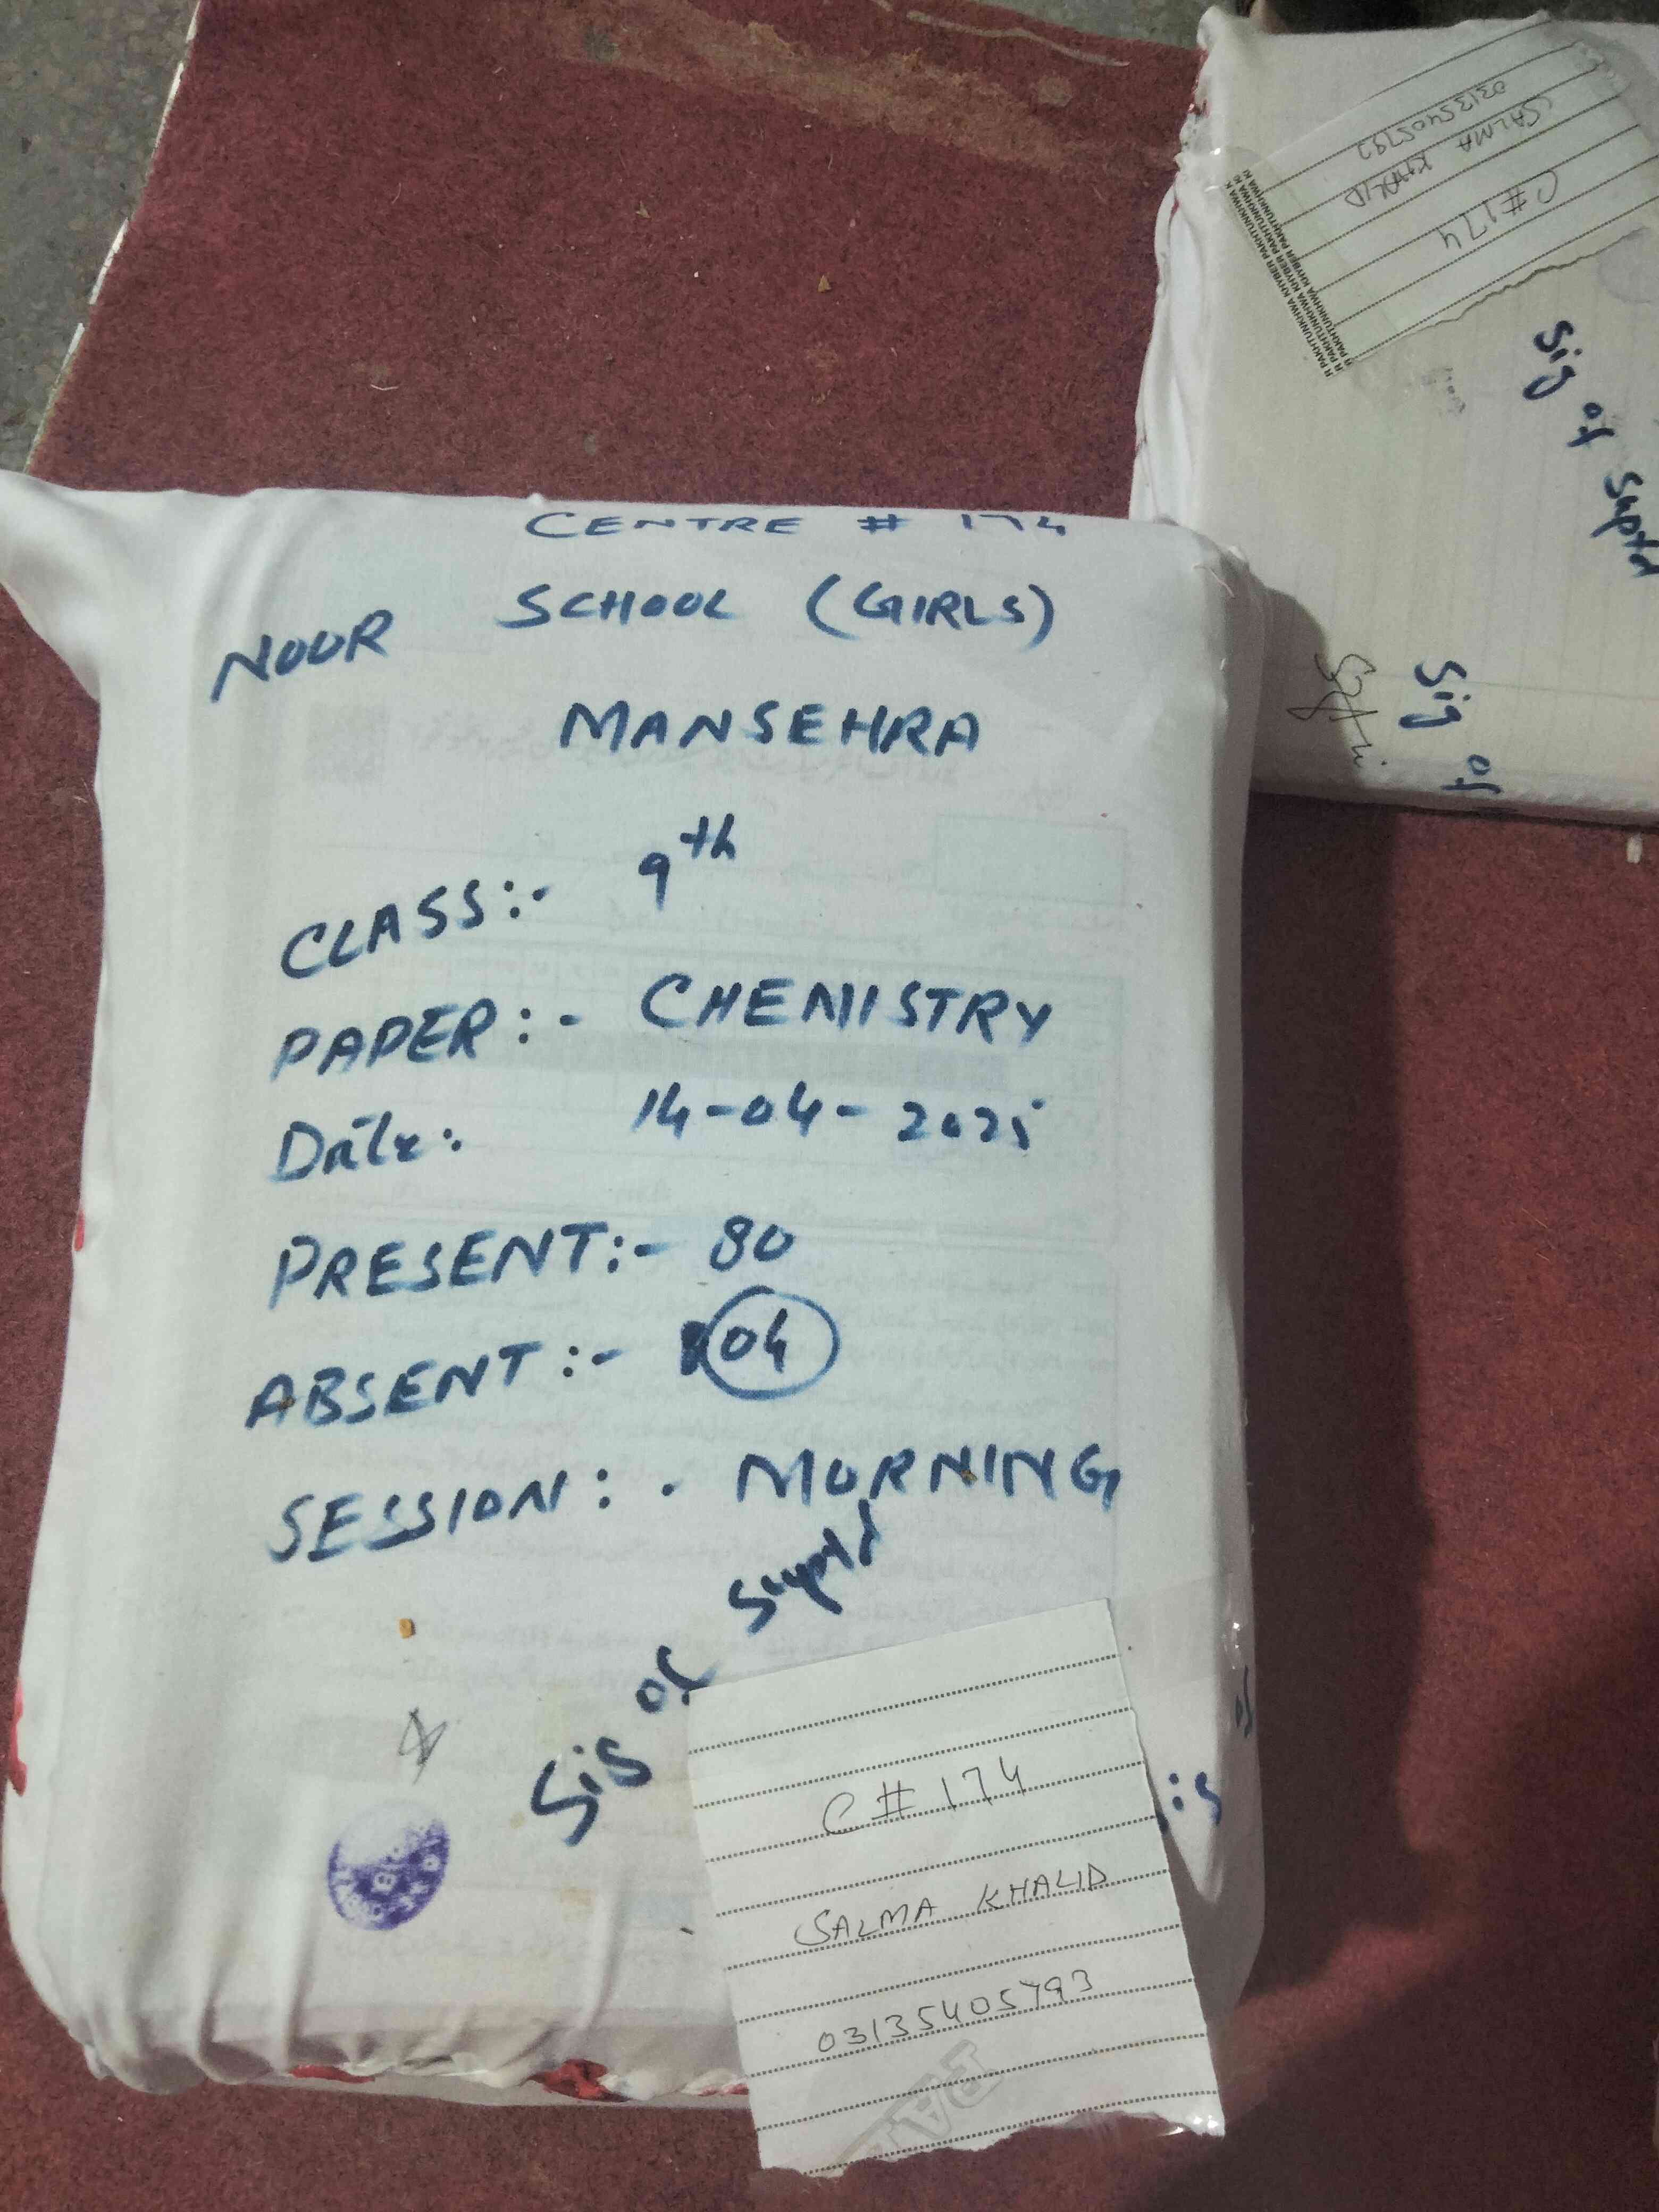 CENTRE # 174
NOOR SCHOOL (GIRLS)
MANSEHRA
CLASS:- 9th
PAPER:- CHEMISTRY
Date: 14-04-2025
PRESENT:- 80
ABSENT:- 04
SESSION:- MORNING
Sig of Suptd
C# 174
SALMA KHALID
03135405793
C# 174
SALMA KHALID
03135405793
Sig of Suptd
Sig of